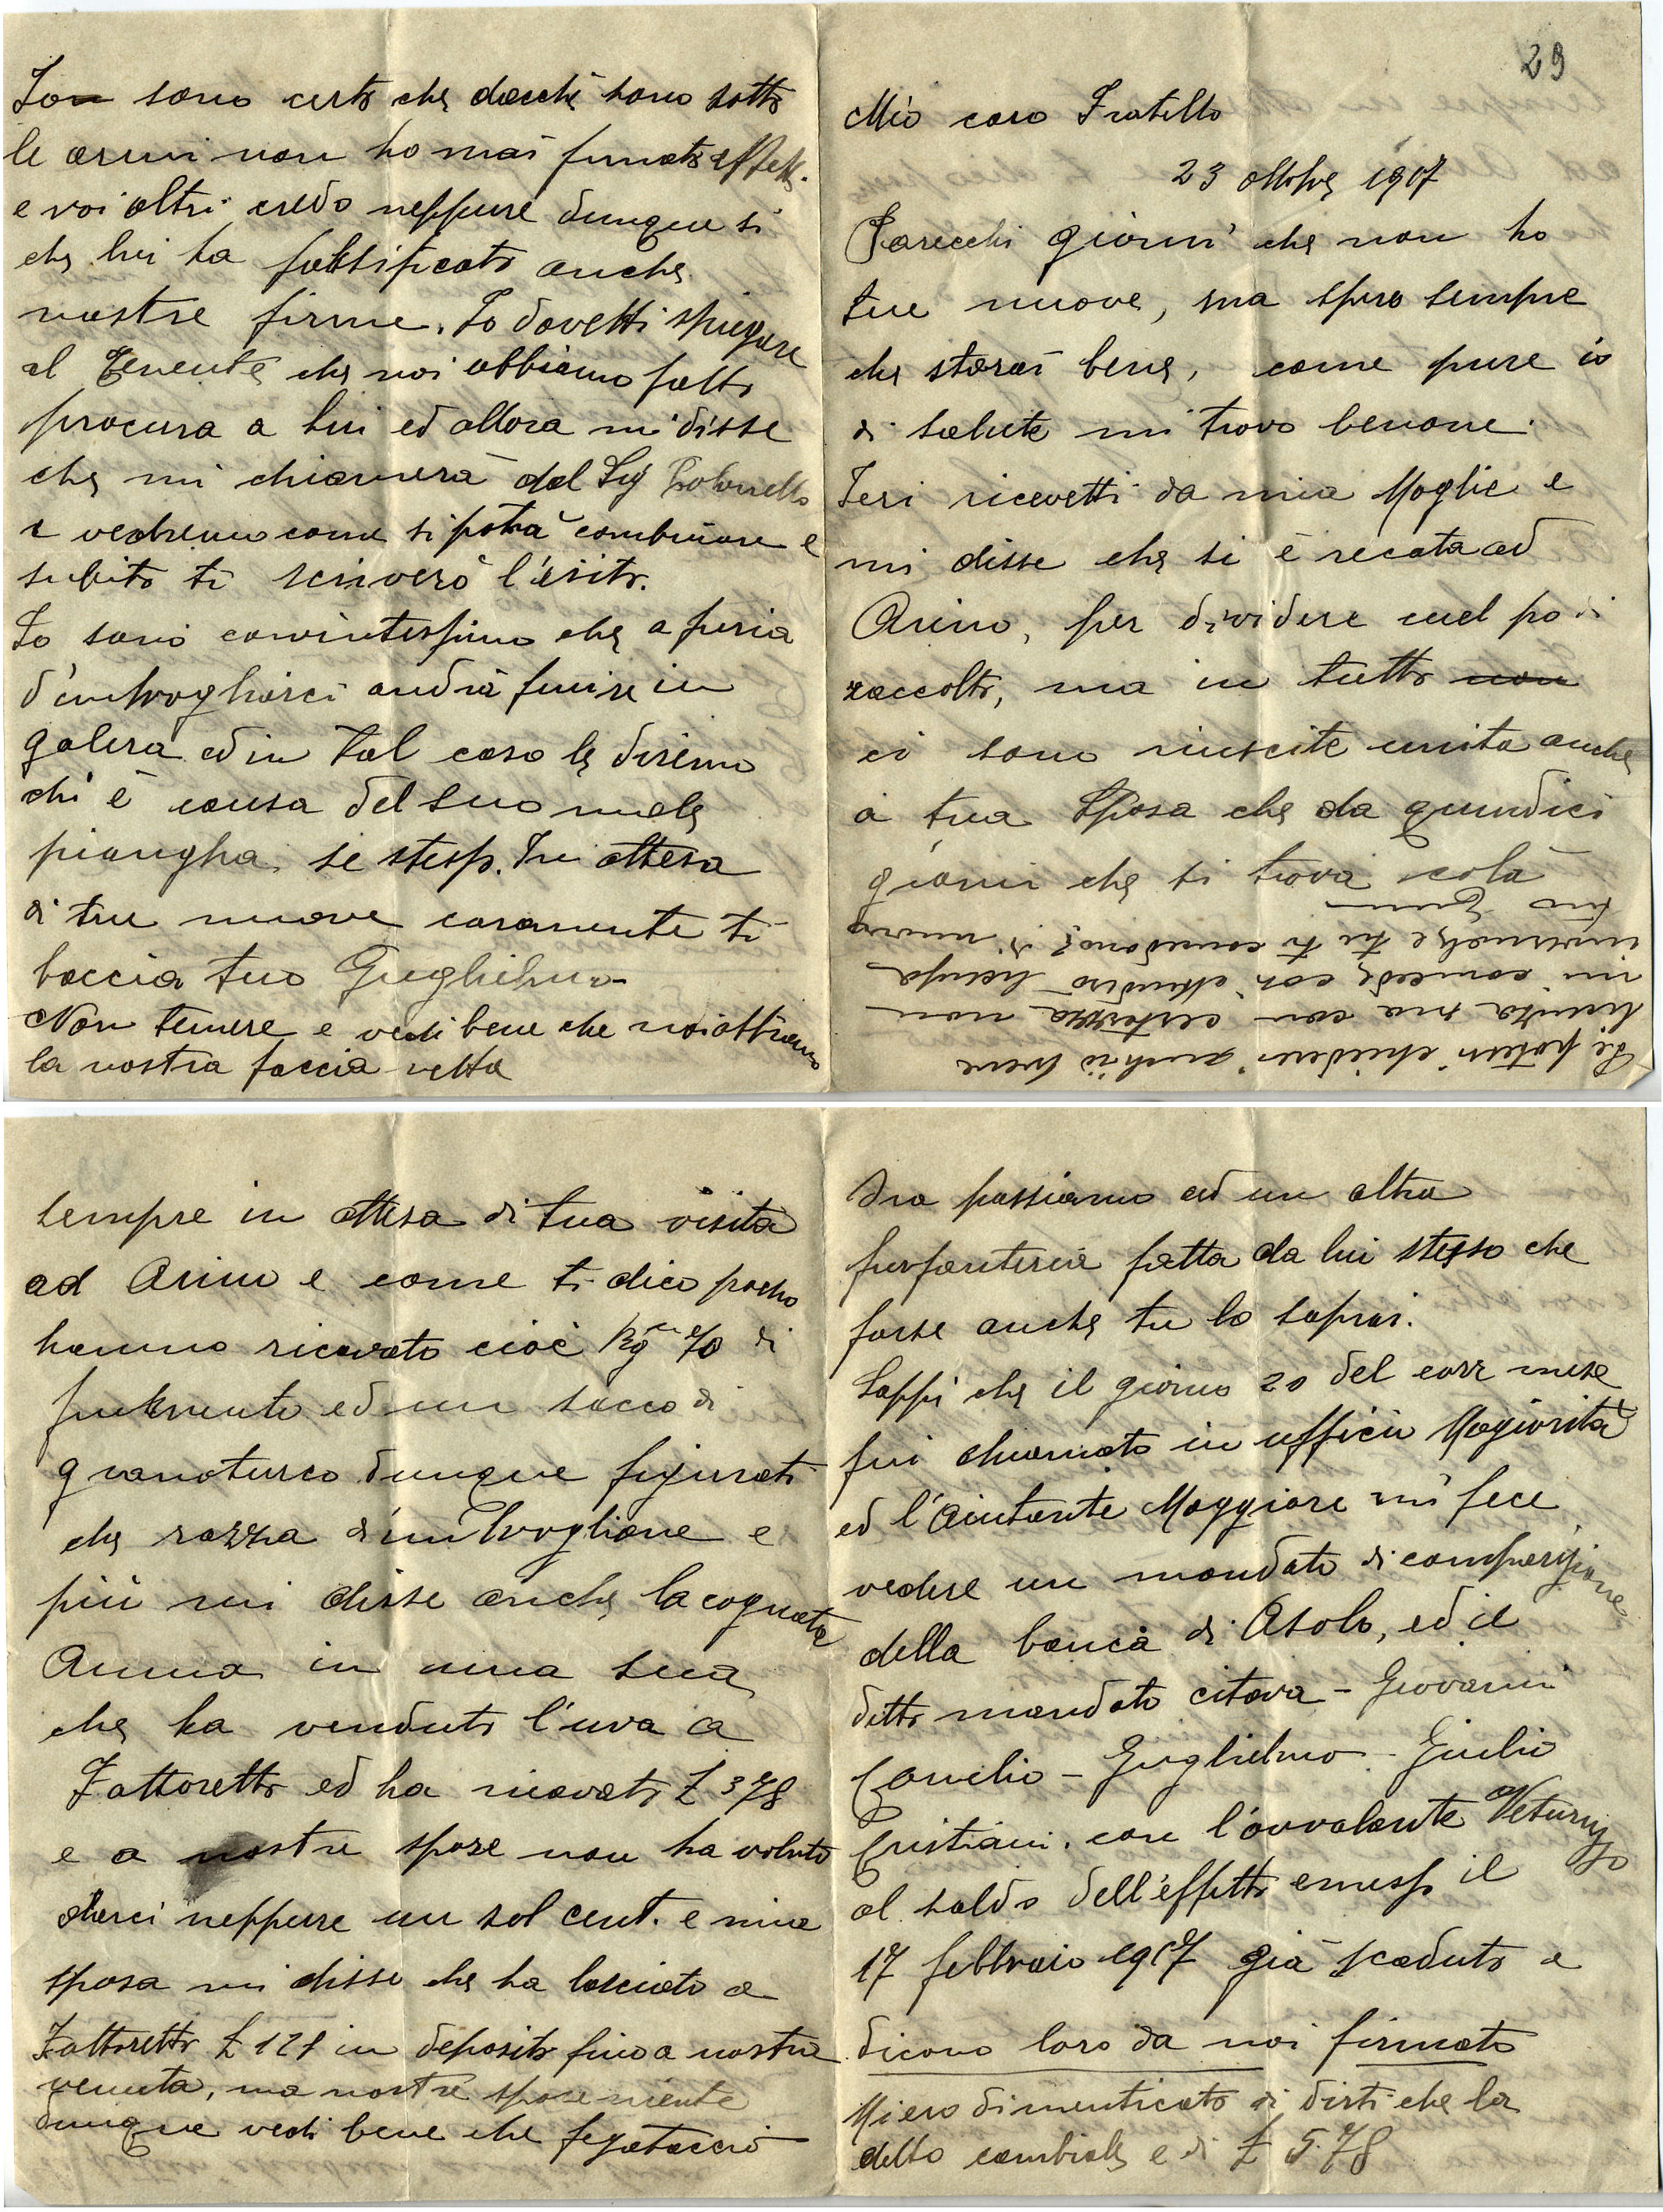 29
Mio caro Fratello
23 ottobre 1917
Parecchi giorni che non ho
tue nuove, ma spero sempre
che starai bene, come pure io
di salute mi trovo benone.
Ieri ricevetti da mia Moglie e
mi disse che si è recata ad
Arino, per dividere quel po di
raccolto, ma in tutto non
ci sono riuscite unita anche
a tua Sposa che da quindici
giorni che si trova colà
sempre in attesa di tua visita
ad Arino e come ti dico pocho
hanno ricavato cioè Kg 70 di
frumento ed un sacco di
granoturco dunque figurati
che razza d'imbroglione e
più mi disse anche la cognata
Anna in una sua
che ha venduto l'uva a
Fattoretto ed ha ricavato £ 378
e a nostre spose non ha voluto
darci neppure un sol cent. e mia
sposa mi disse che ha lasciato a
Fattoretto £ 128 in deposito fino a nostra
venuta, ma nostre spose niente
dunque vedi bene che fegataccio
Ora passiamo ad un altra
furfanteria fatta da lui stesso che
forse anche tu lo saprai.
Sappi che il giorno 20 del corr mese
fui chiamato in ufficio Magiorità
ed l'Aiutante Maggiore mi fece
vedere un mandato di comparizione
della banca di Asolo, ed il
detto mandato citava - Giovanni
Cornelio - Guglielmo - Giulio
Cristiani. con l'avvalante Veturuzzo
al saldo dell'effetto emesso il
17 febbraio 1917 già scaduto e
dicono loro da noi firmato
Mi ero dimenticato di dirti che la
detto cambiale e di £ 578
Ion sono certo che dacché sono sotto
le armi non ho mai firmato effetti.
e voi altri credo neppure dunque si
che lui ha falsificato anche
nostre firme. Io dovetti spiegare
al Tenente che noi abbiamo fatto
procura a lui ed allora mi disse
che mi chiamerà dal Sig Colonello
e vedremo come si potrà combinare e
subito ti scriverò l'esito.
Io sono convintissimo che a furia
d'imbrogliarci andrà finire in
galera ed in tal caso le diremo
chi è causa del suo male
piangha se stesso. In attesa
di tue nuove caramente ti
baccia tuo Guglielmo
Non temere e vedi bene che noi abbiamo
la nostra faccia netta
Se potessi chiederei anch'io breve
licenza ma con certezza non
mi concede, così attenderò licenza
invernale e tu ti concedono? di nuovo
tuo